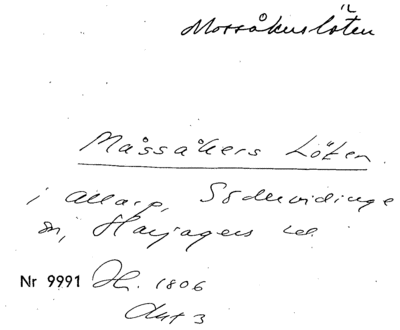 Mossåkerslöten
Måssåkers Löten
i Allarp, Södervidinge
sn, Harjagers hd
Nr 9991 Ih. 1806
Akt 3